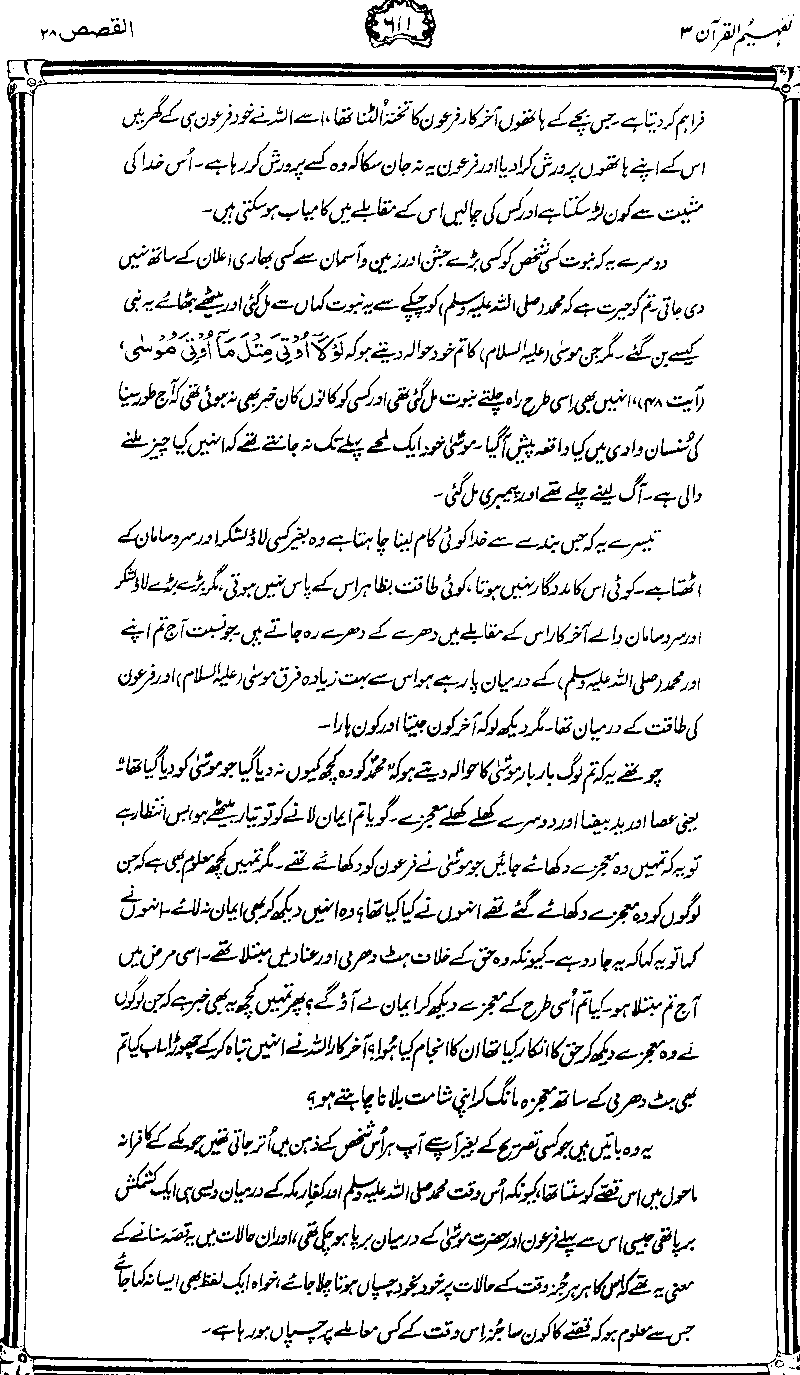 تفہیم القرآن ۳
۶۱۱
القصص ۲۸
فراہم کر دیتا ہے۔ جس بچے کے ہاتھوں آخر کار فرعون کا تختہ اُلٹنا تھا، اسے اللہ نے خود فرعون ہی کے گھر میں
اس کے اپنے ہاتھوں پرورش کرا دیا اور فرعون یہ نہ جان سکا کہ وہ کسے پرورش کر رہا ہے۔ اُس خدا کی
مشیت سے کون لڑ سکتا ہے اور کس کی چالیں اس کے مقابلے میں کامیاب ہو سکتی ہیں۔
دوسرے یہ کہ نبوت کسی شخص کو کسی بڑے جشن اور زمین و آسمان سے کسی بھاری اعلان کے ساتھ نہیں
دی جاتی۔ تم کو حیرت ہے کہ محمد (صلی اللہ علیہ وسلم) کو چپکے سے یہ نبوت کہاں سے مل گئی اور بیٹھے بٹھائے یہ نبی
کیسے بن گئے۔ مگر جن موسیٰ (علیہ السلام) کا تم خود حوالہ دیتے ہو کہ لَوْلَآ اُوْتِیَ مِثْلَ مَآ اُوْتِیَ مُوْسٰی،
(آیت ۴۸)، انہیں بھی اِسی طرح راہ چلتے نبوت مل گئی تھی اور کسی کو کانوں کان خبر بھی نہ ہوئی تھی کہ آج طور سینا
کی سُنسان وادی میں کیا واقعہ پیش آگیا۔ موسیٰؑ خود ایک لمحے پہلے تک نہ جانتے تھے کہ انہیں کیا چیز ملنے
والی ہے۔ آگ لینے چلے تھے اور پیمبری مل گئی۔
تیسرے یہ کہ جس بندے سے خدا کوئی کام لینا چاہتا ہے وہ بغیر کسی لاؤ لشکر اور سر و سامان کے
اٹھتا ہے۔ کوئی اس کا مددگار نہیں ہوتا، کوئی طاقت بظاہر اس کے پاس نہیں ہوتی، مگر بڑے بڑے لاؤ لشکر
اور سر و سامان والے آخر کار اس کے مقابلے میں دھرے کے دھرے رہ جاتے ہیں۔ جو نسبت آج تم اپنے
اور محمد (صلی اللہ علیہ وسلم) کے درمیان پا رہے ہو اس سے بہت زیادہ فرق موسیٰ (علیہ السلام) اور فرعون
کی طاقت کے درمیان تھا۔ مگر دیکھ لو کہ آخر کون جیتا اور کون ہارا۔
چوتھے یہ کہ تم لوگ بار بار موسیٰؑ کا حوالہ دیتے ہو کہ "محمدؐ کو وہ کچھ کیوں نہ دیا گیا جو موسیٰؑ کو دیا گیا تھا"
یعنی عصا اور ید بیضا اور دوسرے کھلے کھلے معجزے۔ گویا تم ایمان لانے کو تو تیار بیٹھے ہو، بس انتظار ہے
تو یہ کہ تمہیں وہ معجزے دکھائے جائیں جو موسیٰؑ نے فرعون کو دکھائے تھے۔ مگر تمہیں کچھ معلوم بھی ہے کہ جن
لوگوں کو وہ معجزے دکھائے گئے تھے انہوں نے کیا کیا تھا؟ وہ انہیں دیکھ کر بھی ایمان نہ لائے۔ انہوں نے
کہا تو یہ کہا کہ یہ جادو ہے۔ کیونکہ وہ حق کے خلاف ہٹ دھرمی اور عناد میں مبتلا تھے۔ اسی مرض میں
آج تم مبتلا ہو۔ کیا تم اُسی طرح کے معجزے دیکھ کر ایمان لے آؤ گے؟ پھر تمہیں کچھ یہ بھی خبر ہے کہ جن لوگوں
نے وہ معجزے دیکھ کر حق کا انکار کیا تھا ان کا انجام کیا ہُوا؟ آخر کار اللہ نے انہیں تباہ کر کے چھوڑا۔ اب کیا تم
بھی ہٹ دھرمی کے ساتھ معجزہ مانگ کر اپنی شامت بلانا چاہتے ہو؟
یہ وہ باتیں ہیں جو کسی تصریح کے بغیر آپ سے آپ ہر اُس شخص کے ذہن میں اُتر جاتی تھیں جو مکے کے کافرانہ
ماحول میں اس قصّے کو سنتا تھا، کیونکہ اُس وقت محمد صلی اللہ علیہ وسلم اور کفار مکہ کے درمیان ویسی ہی ایک کشمکش
برپا تھی جیسی اس سے پہلے فرعون اور حضرت موسیٰؑ کے درمیان برپا ہو چکی تھی، اور ان حالات میں یہ قصّہ سنانے کے
معنی یہ تھے کہ اس کا ہر ہر جُز وقت کے حالات پر خود بخود چسپاں ہوتا چلا جائے، خواہ ایک لفظ بھی ایسا نہ کہا جائے
جس سے معلوم ہو کہ قصّے کا کون سا جُز اس وقت کے کس معاملے پر چسپاں ہو رہا ہے۔